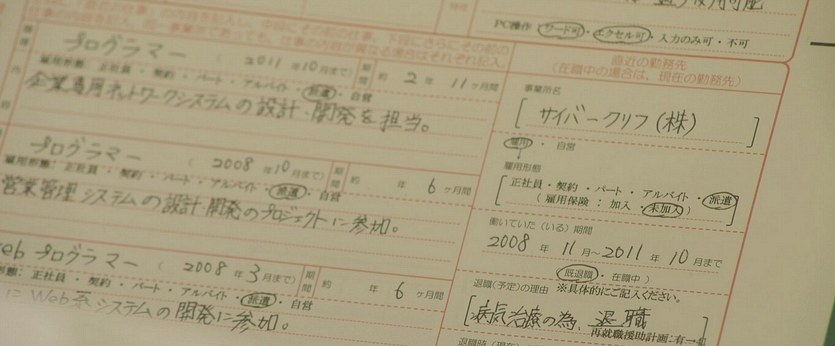 PC操作 ワード可・エクセル可・入力のみ可・不可
プログラマー ( 2011 年 10 月まで)
期間 約 2 年 11 ヶ月間
雇用形態: 正社員・契約・パート・アルバイト・派遣・自営
企業専用ネットワークシステムの設計・開発を担当。
プログラマー ( 2008 年 10 月まで)
期間 約 年 6 ヶ月間
雇用形態: 正社員・契約・パート・アルバイト・派遣・自営
営業管理システムの設計開発のプロジェクトに参加。
Web プログラマー ( 2008 年 3 月まで)
期間 約 年 6 ヶ月間
形態: 正社員・契約・パート・アルバイト・派遣・自営
Web系システムの開発に参加。
直近の勤務先
(在職中の場合は、現在の勤務先)
事業所名
サイバークリフ(株)
雇用・自営
雇用形態
正社員・契約・パート・アルバイト・派遣
(雇用保険:加入・未加入)
働いていた(いる)期間
2008 年 11 月~ 2011 年 10 月まで
(既退職・在職中)
退職(予定)の理由 ※具体的にご記入ください。
病気治療の為、退職
再就職援助計画:有